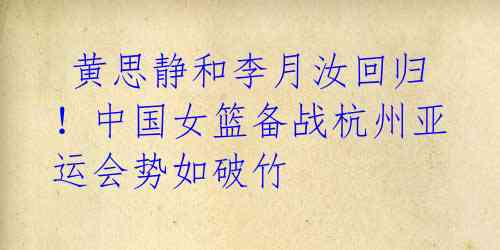 黄思静和李月汝回归
！中国女篮备战杭州亚
运会势如破竹